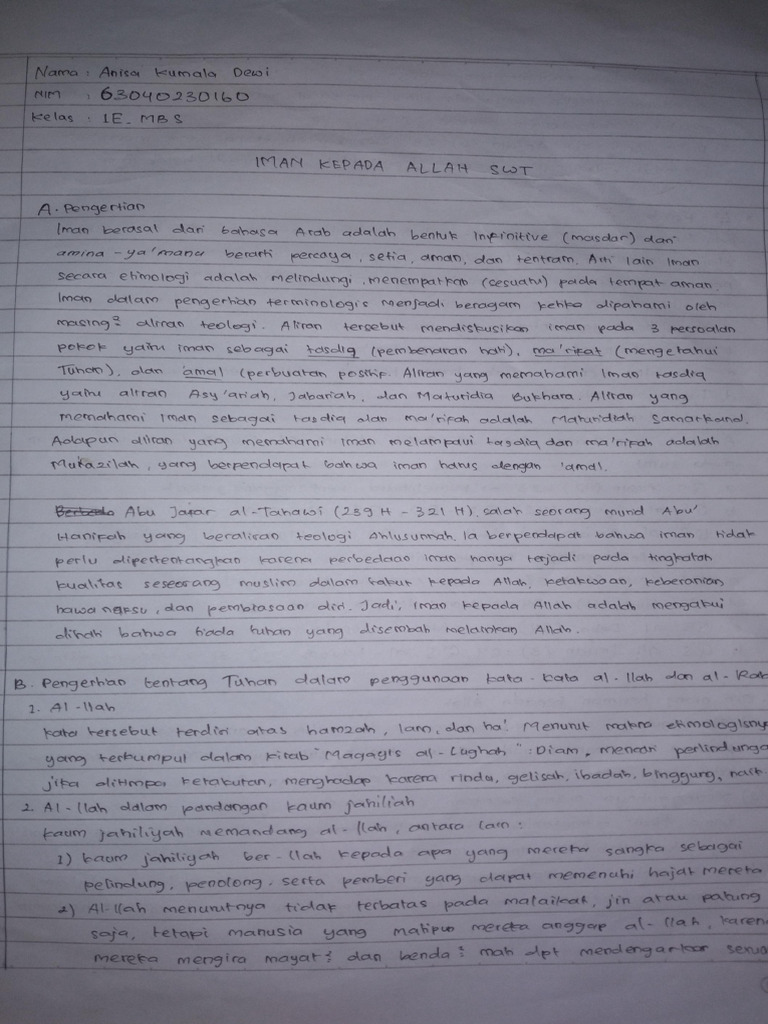 Nama : Anisa Kumala Dewi
NIM : 63040230160
Kelas : 1E_MBS
IMAN KEPADA ALLAH SWT
A. Pengertian
Iman berasal dari bahasa Arab adalah bentuk Infinitive (masdar) dari
amina - ya'manu berarti percaya, setia, aman, dan tentram. Arti lain Iman
secara etimologi adalah melindungi, menempatkan (sesuatu) pada tempat aman.
Iman dalam pengertian terminologis menjadi beragam ketika dipahami oleh
masing² aliran teologi. Aliran tersebut mendiskusikan iman pada 3 persoalan
pokok yaitu iman sebagai tasdiq (pembenaran hati), ma'rifat (mengetahui
Tuhan), dan 'amal (perbuatan positif. Aliran yang memahami Iman tasdiq
yaitu aliran Asy'ariah, Jabariah, dan Maturidia Bukhara. Aliran yang
memahami Iman sebagai tasdiq dan ma'rifah adalah Maturidiah Samarkand.
Adapun aliran yang memahami iman melampaui tasdiq dan ma'rifah adalah
Muktazilah, yang berpendapat bahwa iman harus dengan 'amal.
Abu Jafar al-Tahawi (239 H - 321 H). salah seorang murid Abu'
Hanifah yang beraliran teologi Ahlusunnah. Ia berpendapat bahwa iman tidak
perlu dipertentangkan karena perbedaan Iman hanya terjadi pada tingkatan
kualitas seseorang muslim dalam takut kepada Allah, ketakwaan, keberanian
hawa nafsu, dan pembiasaan diri. Jadi, Iman kepada Allah adalah mengakui
dihati bahwa tiada tuhan yang disembah melainkan Allah.
B. Pengertian tentang Tuhan dalam penggunaan kata-kata al-Ilah dan al-Rab
1. Al-Ilah
Kata tersebut terdiri atas hamzah, lam, dan ha'. Menurut makna etimologisny
yang terkumpul dalam kitab "Maqayis al-Lughah" : Diam, mencari perlindunga
jika ditimpa ketakutan, menghadap karena rindu, gelisah, ibadah, binggung, naik.
2. Al-Ilah dalam pandangan kaum jahiliah
Kaum jahiliyah memandang al-Ilah, antara lain :
1) Kaum jahiliyah ber-Ilah kepada apa yang mereka sangka sebagai
pelindung, penolong, serta pemberi yang dapat memenuhi hajat mereka
2) Al-Ilah menurutnya tidak terbatas pada malaikat, jin atau patung
saja, tetapi manusia yang matipun mereka anggap al-Ilah, karen
mereka mengira mayat² dan benda² mati dpt mendengarkan